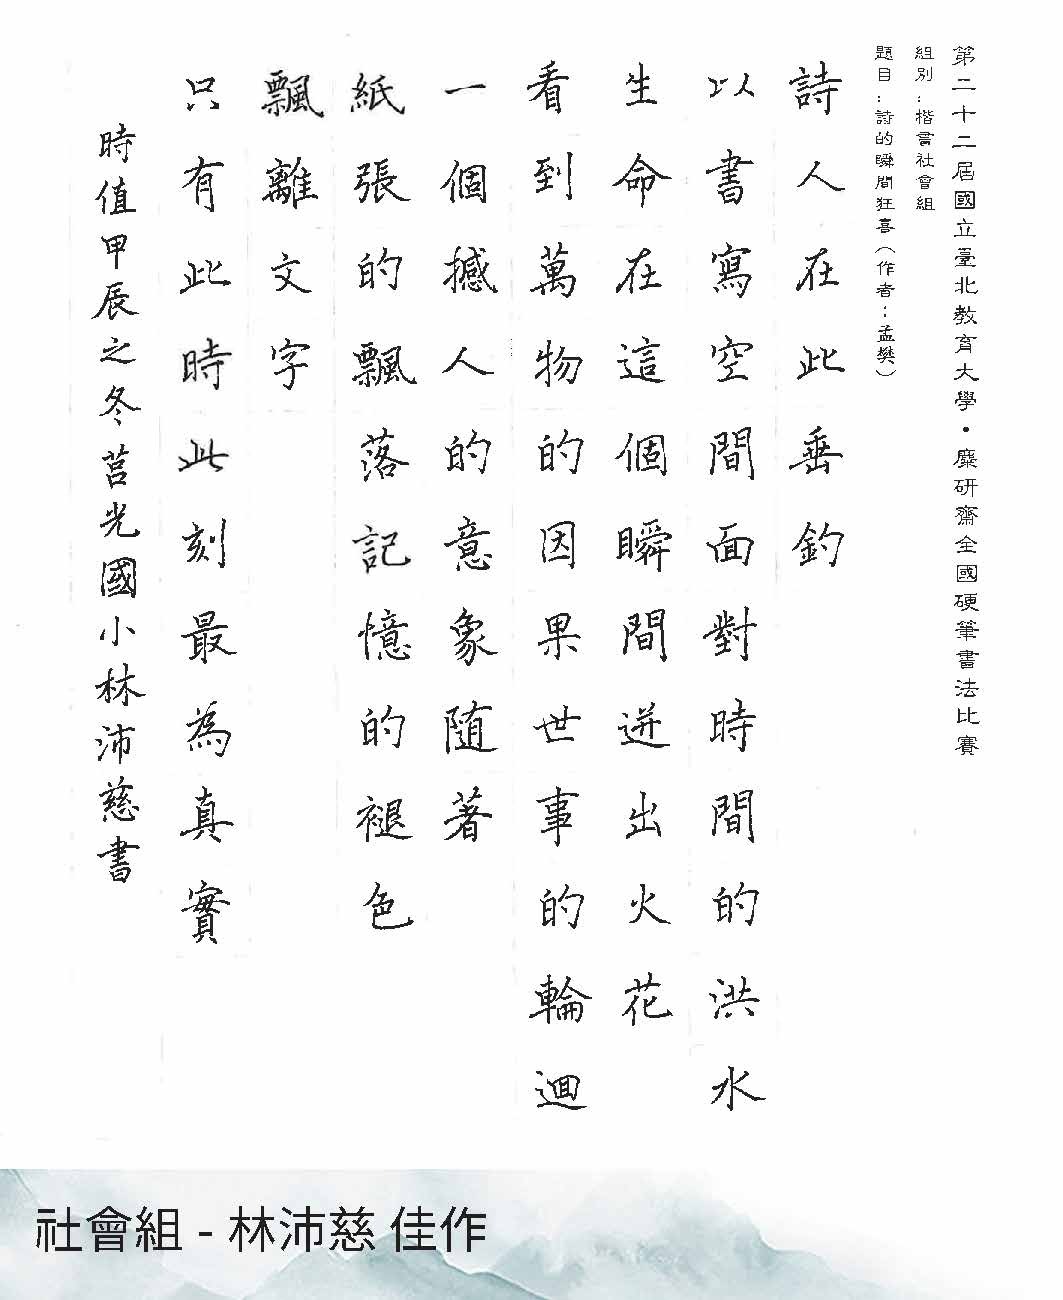 第二十二屆國立臺北教育大學・麋研齋全國硬筆書法比賽
組別：楷書社會組
題目：詩的瞬間狂喜（作者：孟樊）
詩人在此垂釣
以書寫空間面對時間的洪水
生命在這個瞬間迸出火花
看到萬物的因果世事的輪迴
一個撼人的意象隨著
紙張的飄落記憶的褪色
飄離文字
只有此時此刻最為真實
時值甲辰之冬莒光國小林沛慈書
社會組 - 林沛慈 佳作